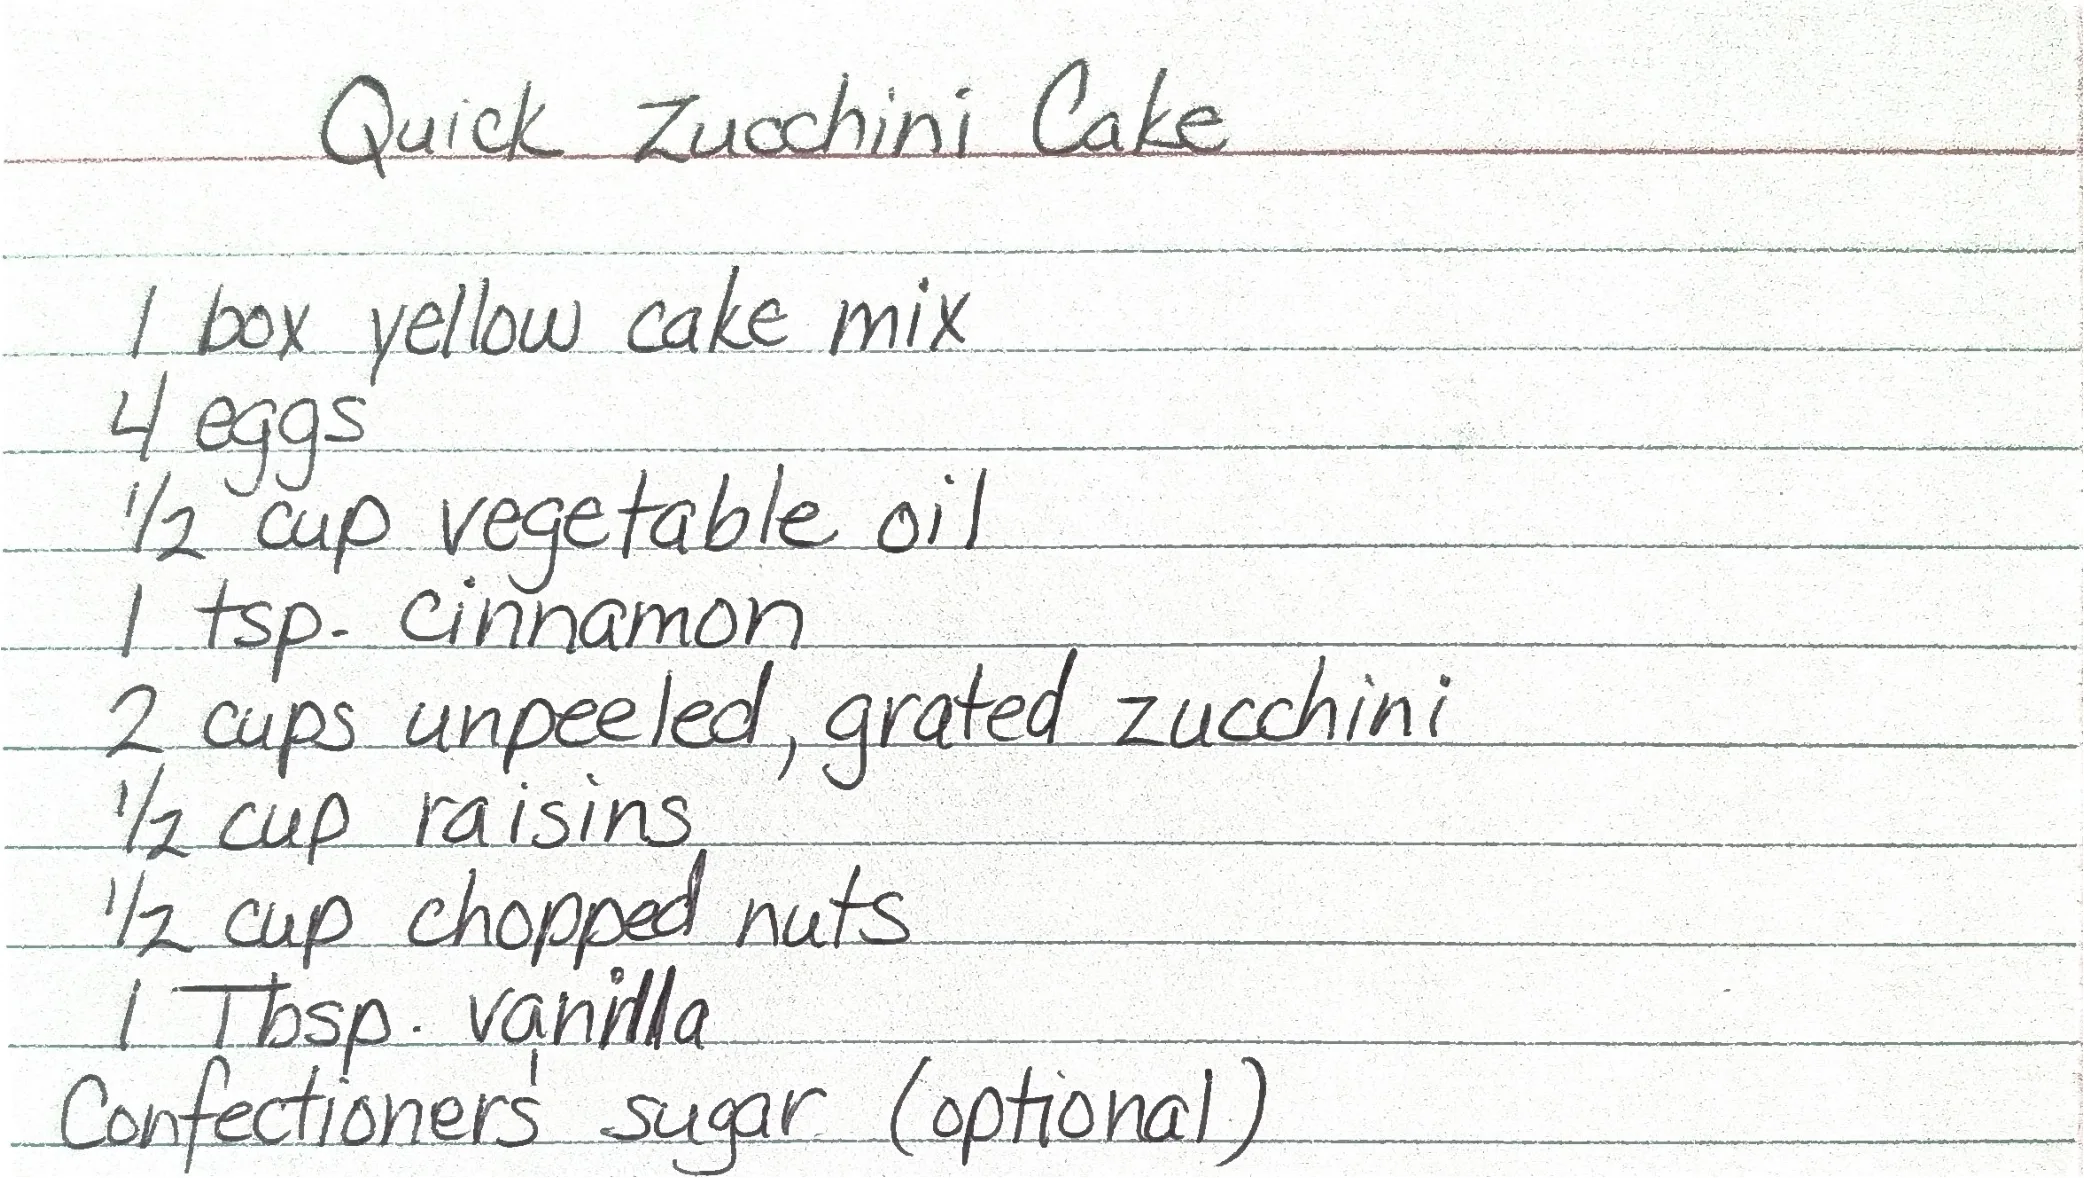 Quick Zucchini Cake
1 box yellow cake mix
4 eggs
1/2 cup vegetable oil
1 tsp. cinnamon
2 cups unpeeled, grated zucchini
1/2 cup raisins
1/2 cup chopped nuts
1 Tbsp. vanilla
Confectioners' sugar (optional)